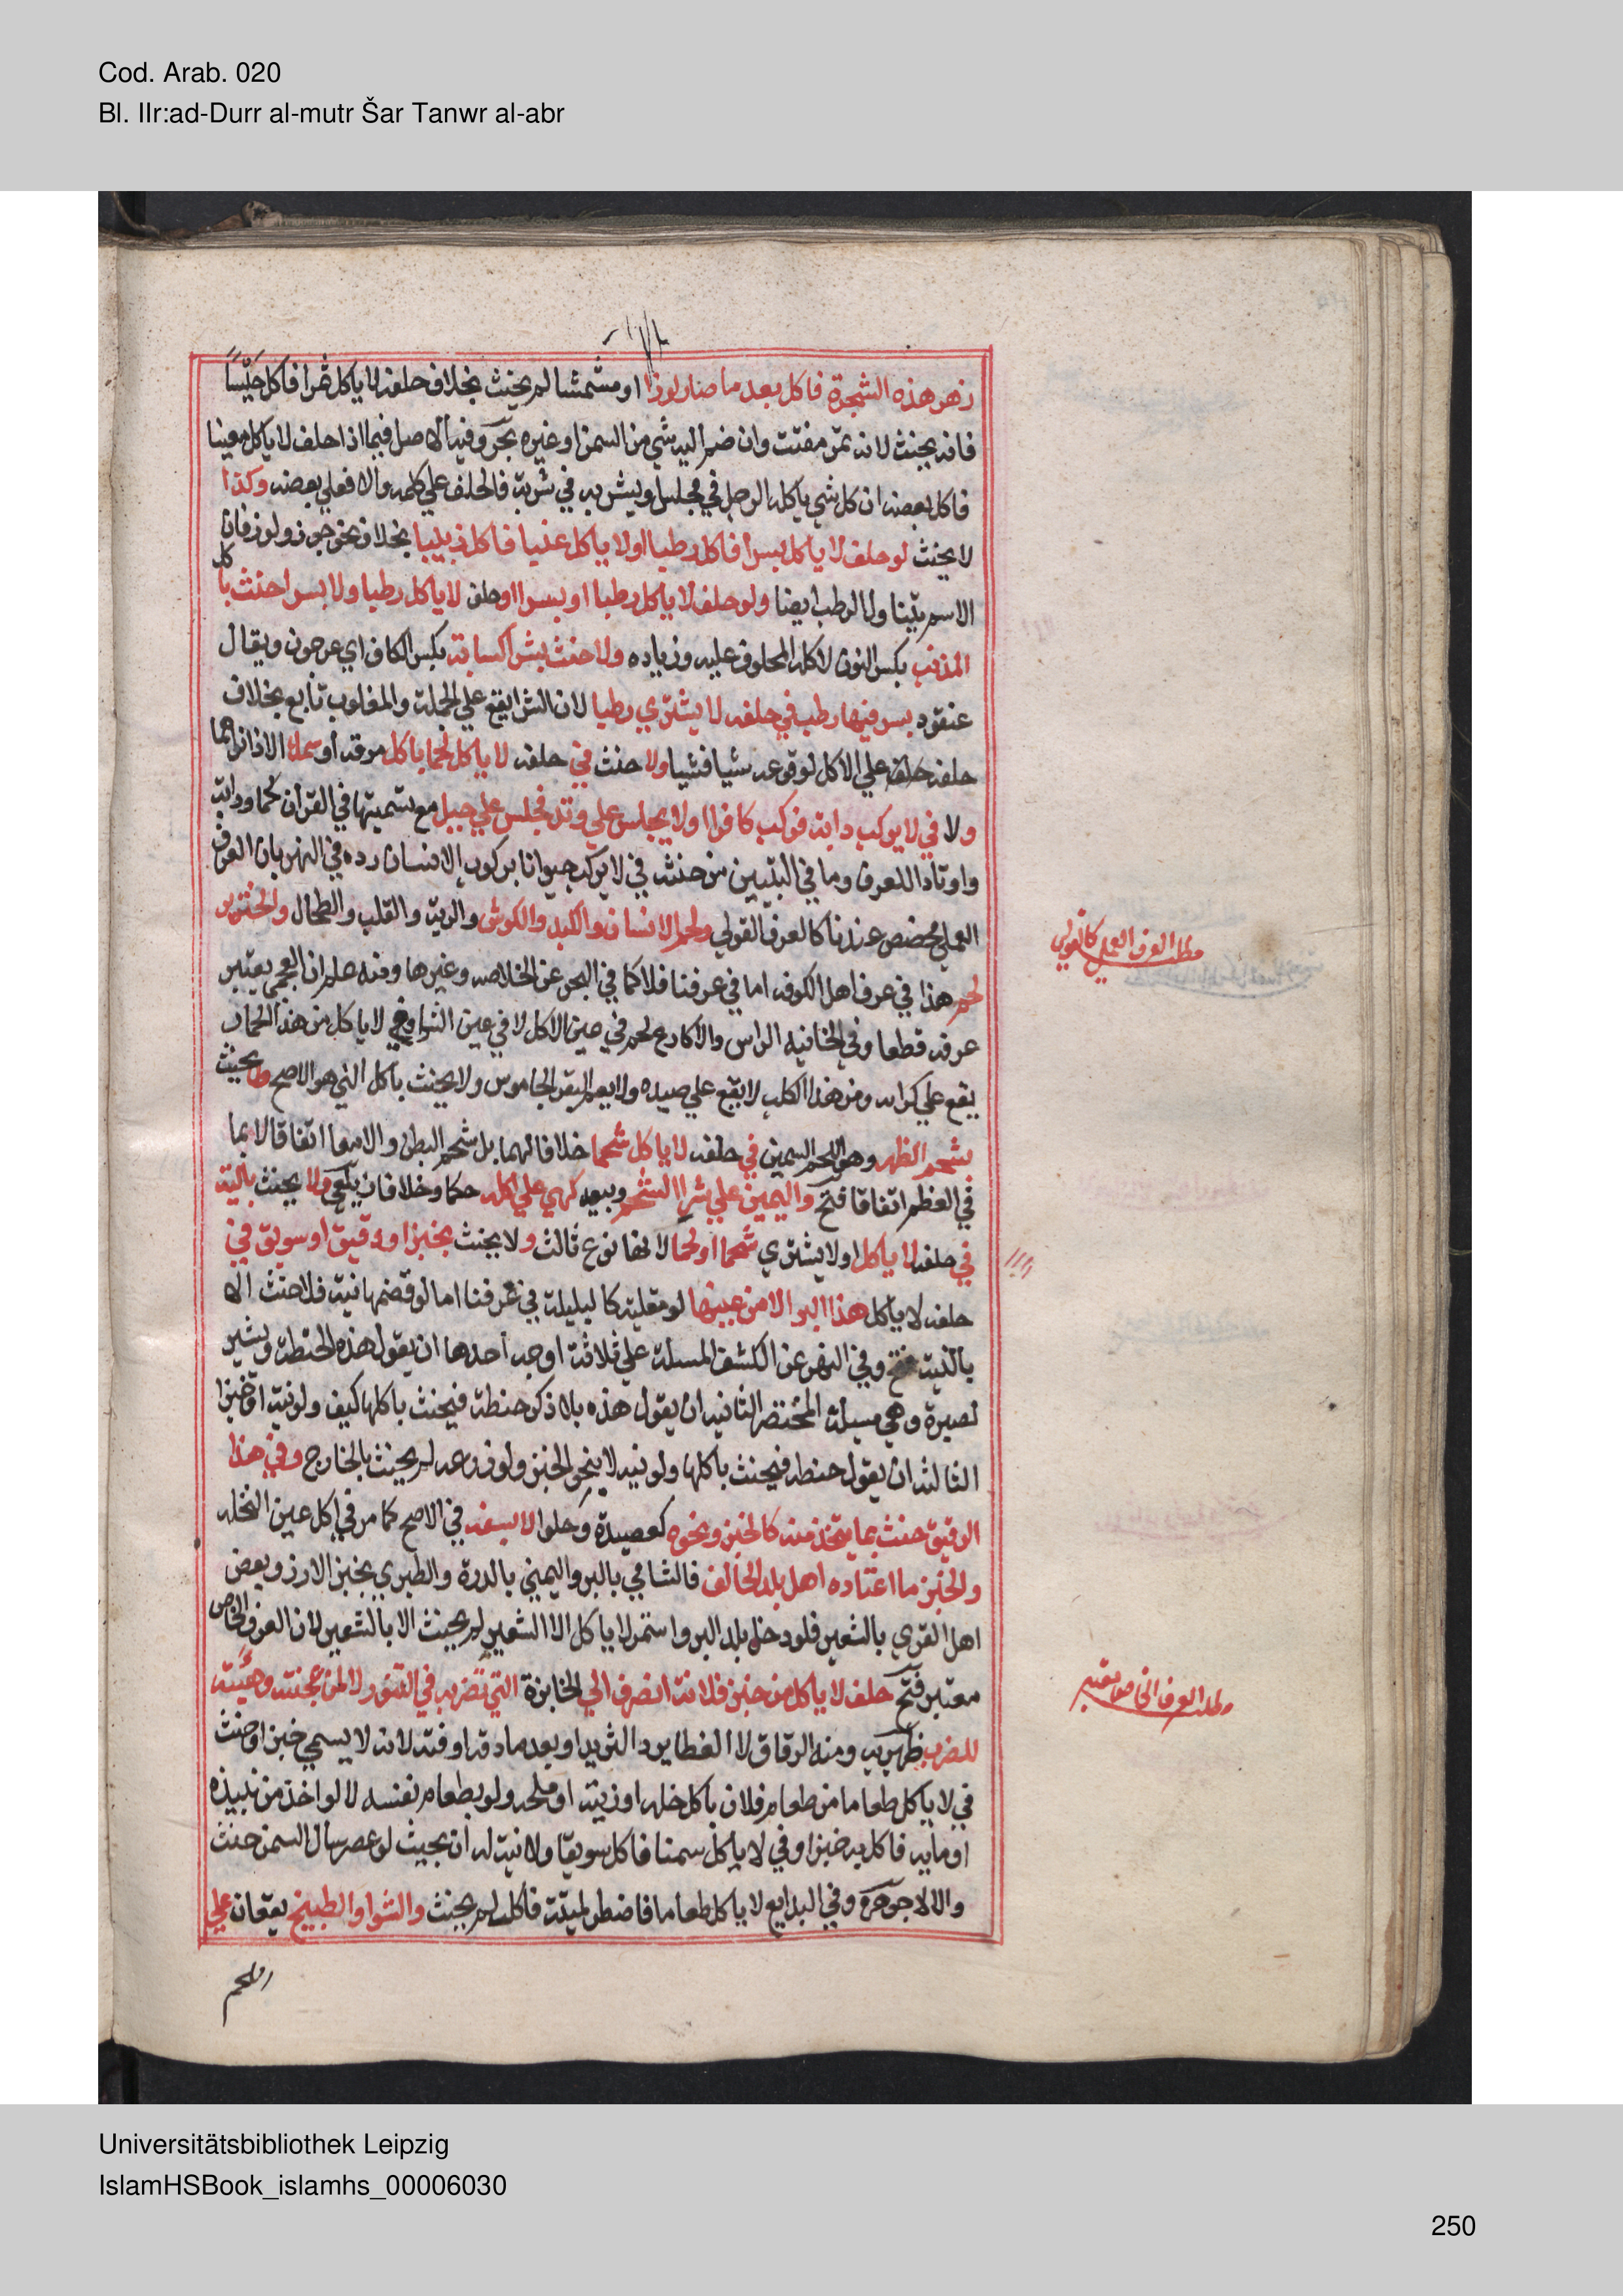 Cod. Arab. 020
Bl. IIr:ad-Durr al-mutr Šar Tanwr al-abr
زهر هذه الشجرة فاكل بعد ما صار لوزا او مشمشا لم يحنث بخلاف حلفه لا ياكل تمرا فاكل حيسا
فانه يحنث لانه تمر مفتت وان ضم اليه شي من السمن او غيره بحر وفيه الاصل فيما اذا حلف لا ياكل معينا
فاكل بعضه ان كل شي ياكله الرجل في مجلس او يشربه في شربة فالحلف علي كله والا فعلي بعضه وكذا
لا يحنث لو حلف لا ياكل بسرا فاكل رطبا او لا ياكل عنبا فاكل زبيبا بخلاف نحو جوز ولوز فان
الاسم يتناول الرطب ايضا ولو حلف لا ياكل رطبا او بسرا او حلف لا ياكل رطبا ولا بسرا حنث باكل
المذنب بكسر النون لاكله المحلوف عليه وزياده ولا حنث بشرا كباسة بكسر الكاف اي عرجون ويقال
عنقود بسر فيها رطب في حلفه لا يشتري رطبا لان الشرا يقع علي الجملة والمغلوب تابع بخلاف
حلفه علي الاكل لوقوعه شيا فشيا ولا حنث في حلفه لا ياكل لحما باكل مرقه او سمك الا اذا نواهما
ولا في لا يركب دابة فركب كافرا او لا يجلس علي وتد فجلس علي جبل مع تسميتها في القران لحما ودابة
واوتادا للعرف وما في التبيين من حنثه في لا يركب حيوانا بركوب الانسان رده في النهر بان العرف
العملي مخصص عندنا كالعرف القولي ولحم الانسان والكبد والكرش والرية والقلب والطحال والخنزير
لحم هذا في عرف اهل الكوفه اما في عرفنا فلا كما في البحر عن الخلاصه وغيرها ومنه علم ان العجمي يعتبر
عرفه قطعا وفي الخانيه الراس والاكارع لحم في يمين الاكل لا في يمين الشرا وفي لا ياكل من هذا الحمار
يقع علي كرائه ومن هذا الكلب لا يقع علي صيده ولا يعم البقر الجاموس ولا يحنث باكل الني هو الاصح ولا يحنث
بشحم الظهر وهو اللحم السمين في حلفه لا ياكل شحما خلافا لهما بل بشحم البطن والامعا اتفاقا لا بما
في العظم اتفاقا فتح واليمين علي شرا الشحم وبيعه كهي علي اكله حكما وخلافا زيلعي ولا يحنث بالية
في حلفه لا ياكل او لا يشتري شحما او لحما لانها نوع ثالث ولا يحنث بخبز او دقيق او سويق في
حلفه لا ياكل هذا البر الا من عينها لو مقلية كالبليلة في عرفنا اما لو قضمها نية فلا حنث الا
بالنية فتح وفي النهر عن الكشف المسئلة علي ثلاثة اوجه احدها ان يقول هذه الحنطة ويشير
لصبرة وهي مسئلة المختصر الثانيه ان يقول هذه بلا ذكر حنطة فيحنث باكلها كيف ولو نية او خبزا
الثالثه ان يقول حنطه فيحنث باكلها ولو نيه لا بنحو الخبز ولو زرعه لم يحنث بالخارج وفي هذا
الدقيق حنث بما يتخذ منه كالخبز ونحوه كعصيدة وحلوا لا بسفه في الاصح كما مر في اكل عين النخله
والخبز ما اعتاده اهل بلد الحالف فالشامي بالبر واليمني بالذرة والطبري بخبز الارز وبعض
اهل القري بالشعير فلو دخل بلد البر واستمر لا ياكل الا الشعير لم يحنث الا بالشعير لان العرف الخاص
معتبر فتح حلف لا ياكل من خبز فلانة انصرف الي الخابزة التي تضربه في التنور لا لمن عجنته وهيئته
للضرب ظهيريه ومنه الرقاق لا القطايف والثريد او بعد ما دقه او فته لانه لا يسمي خبزا وحنث
في لا ياكل طعاما من طعام فلان باكل خله او زيته او ملحه ولو بطعام نفسه لا لو اخذ من نبيذه
او مايه فاكل به خبزا وفي لا ياكل سمنا فاكل سويقا ولا نية له ان بحيث لو عصر سال السمن حنث
والا لا جوهرة وفي البدايع لا ياكل طعاما فاضطر لميتة فاكل لم يحنث والشوا والطبيخ يقعان علي
اللحم
مطلب العرف العملي كالقولي
مطلب العرف الخاص معتبر
Universitätsbibliothek Leipzig
IslamHSBook_islamhs_00006030
250